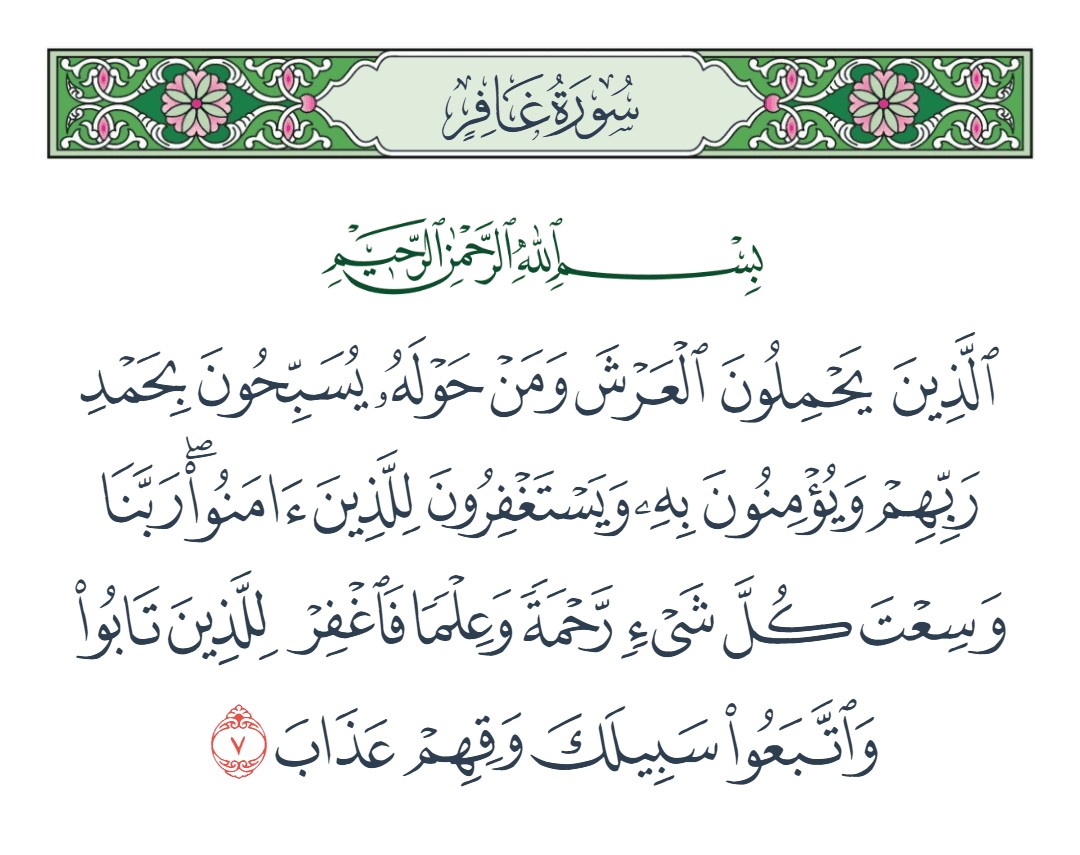 سُورَةُ غَافِرٍ
بِسْمِ ٱللَّهِ ٱلرَّحْمَٰنِ ٱلرَّحِيمِ
ٱلَّذِينَ يَحْمِلُونَ ٱلْعَرْشَ وَمَنْ حَوْلَهُۥ يُسَبِّحُونَ بِحَمْدِ
رَبِّهِمْ وَيُؤْمِنُونَ بِهِۦ وَيَسْتَغْفِرُونَ لِلَّذِينَ ءَامَنُوا۟ۖ رَبَّنَا
وَسِعْتَ كُلَّ شَىْءٍ رَّحْمَةً وَعِلْمًا فَٱغْفِرْ لِلَّذِينَ تَابُوا۟
وَٱتَّبَعُوا۟ سَبِيلَكَ وَقِهِمْ عَذَابَ ٧